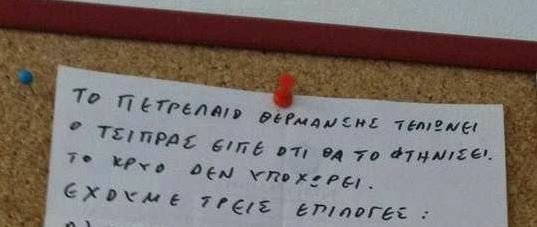 ΤΟ ΠΕΤΡΕΛΑΙΟ ΘΕΡΜΑΝΣΗΣ ΤΕΛΙΩΝΕΙ
Ο ΤΣΙΠΡΑΣ ΕΙΠΕ ΟΤΙ ΘΑ ΤΟ ΦΤΗΝΙΣΕΙ.
ΤΟ ΚΡΥΟ ΔΕΝ ΥΠΟΧΩΡΕΙ.
ΕΧΟΥΜΕ ΤΡΕΙΣ ΕΠΙΛΟΓΕΣ :